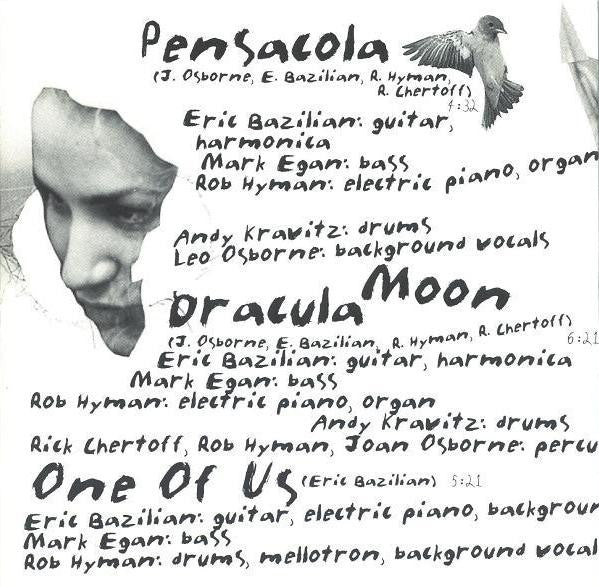 Pensacola
(J. Osborne, E. Bazilian, R. Hyman,
R. Chertoff)
4:32
Eric Bazilian: guitar,
harmonica
Mark Egan: bass
Rob Hyman: electric piano, organ
Andy Kravitz: drums
Leo Osborne: background vocals
Dracula Moon
(J. Osborne, E. Bazilian, R. Hyman, R. Chertoff)
6:21
Eric Bazilian: guitar, harmonica
Mark Egan: bass
Rob Hyman: electric piano, organ
Andy Kravitz: drums
Rick Chertoff, Rob Hyman, Joan Osborne: percu
One Of Us (Eric Bazilian) 5:21
Eric Bazilian: guitar, electric piano, backgrour
Mark Egan: bass
Rob Hyman: drums, mellotron, background vocal